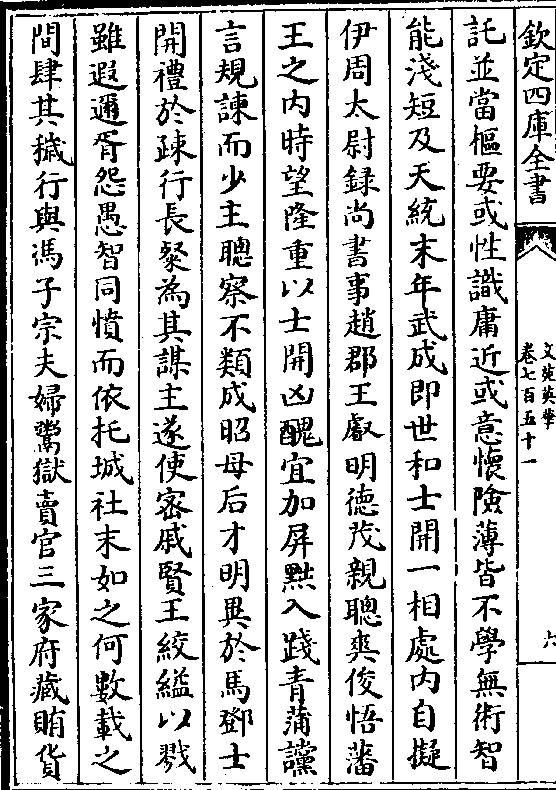 欽定四庫全書
文苑英華
卷七百五十一
六
託並當樞要或性識庸近或意懷險薄皆不學無術智
能淺短及天統末年武成即世和士開一相處内自擬
伊周太尉録尚書事趙郡王叡明德茂親聰爽俊悟藩
王之内時望隆重以士開凶醜宜加屏黜入踐青蒲讜
言規諫而少主聰察不類成昭母后才明異於馬鄧士
開禮於疎行長粲為其謀主遂使宻戚賢王絞縊以戮
雖遐邇胥怨愚智同憤而依托城社末如之何數載之
間肆其穢行與馮子宗夫婦鬻獄賣官三家府藏賄貨